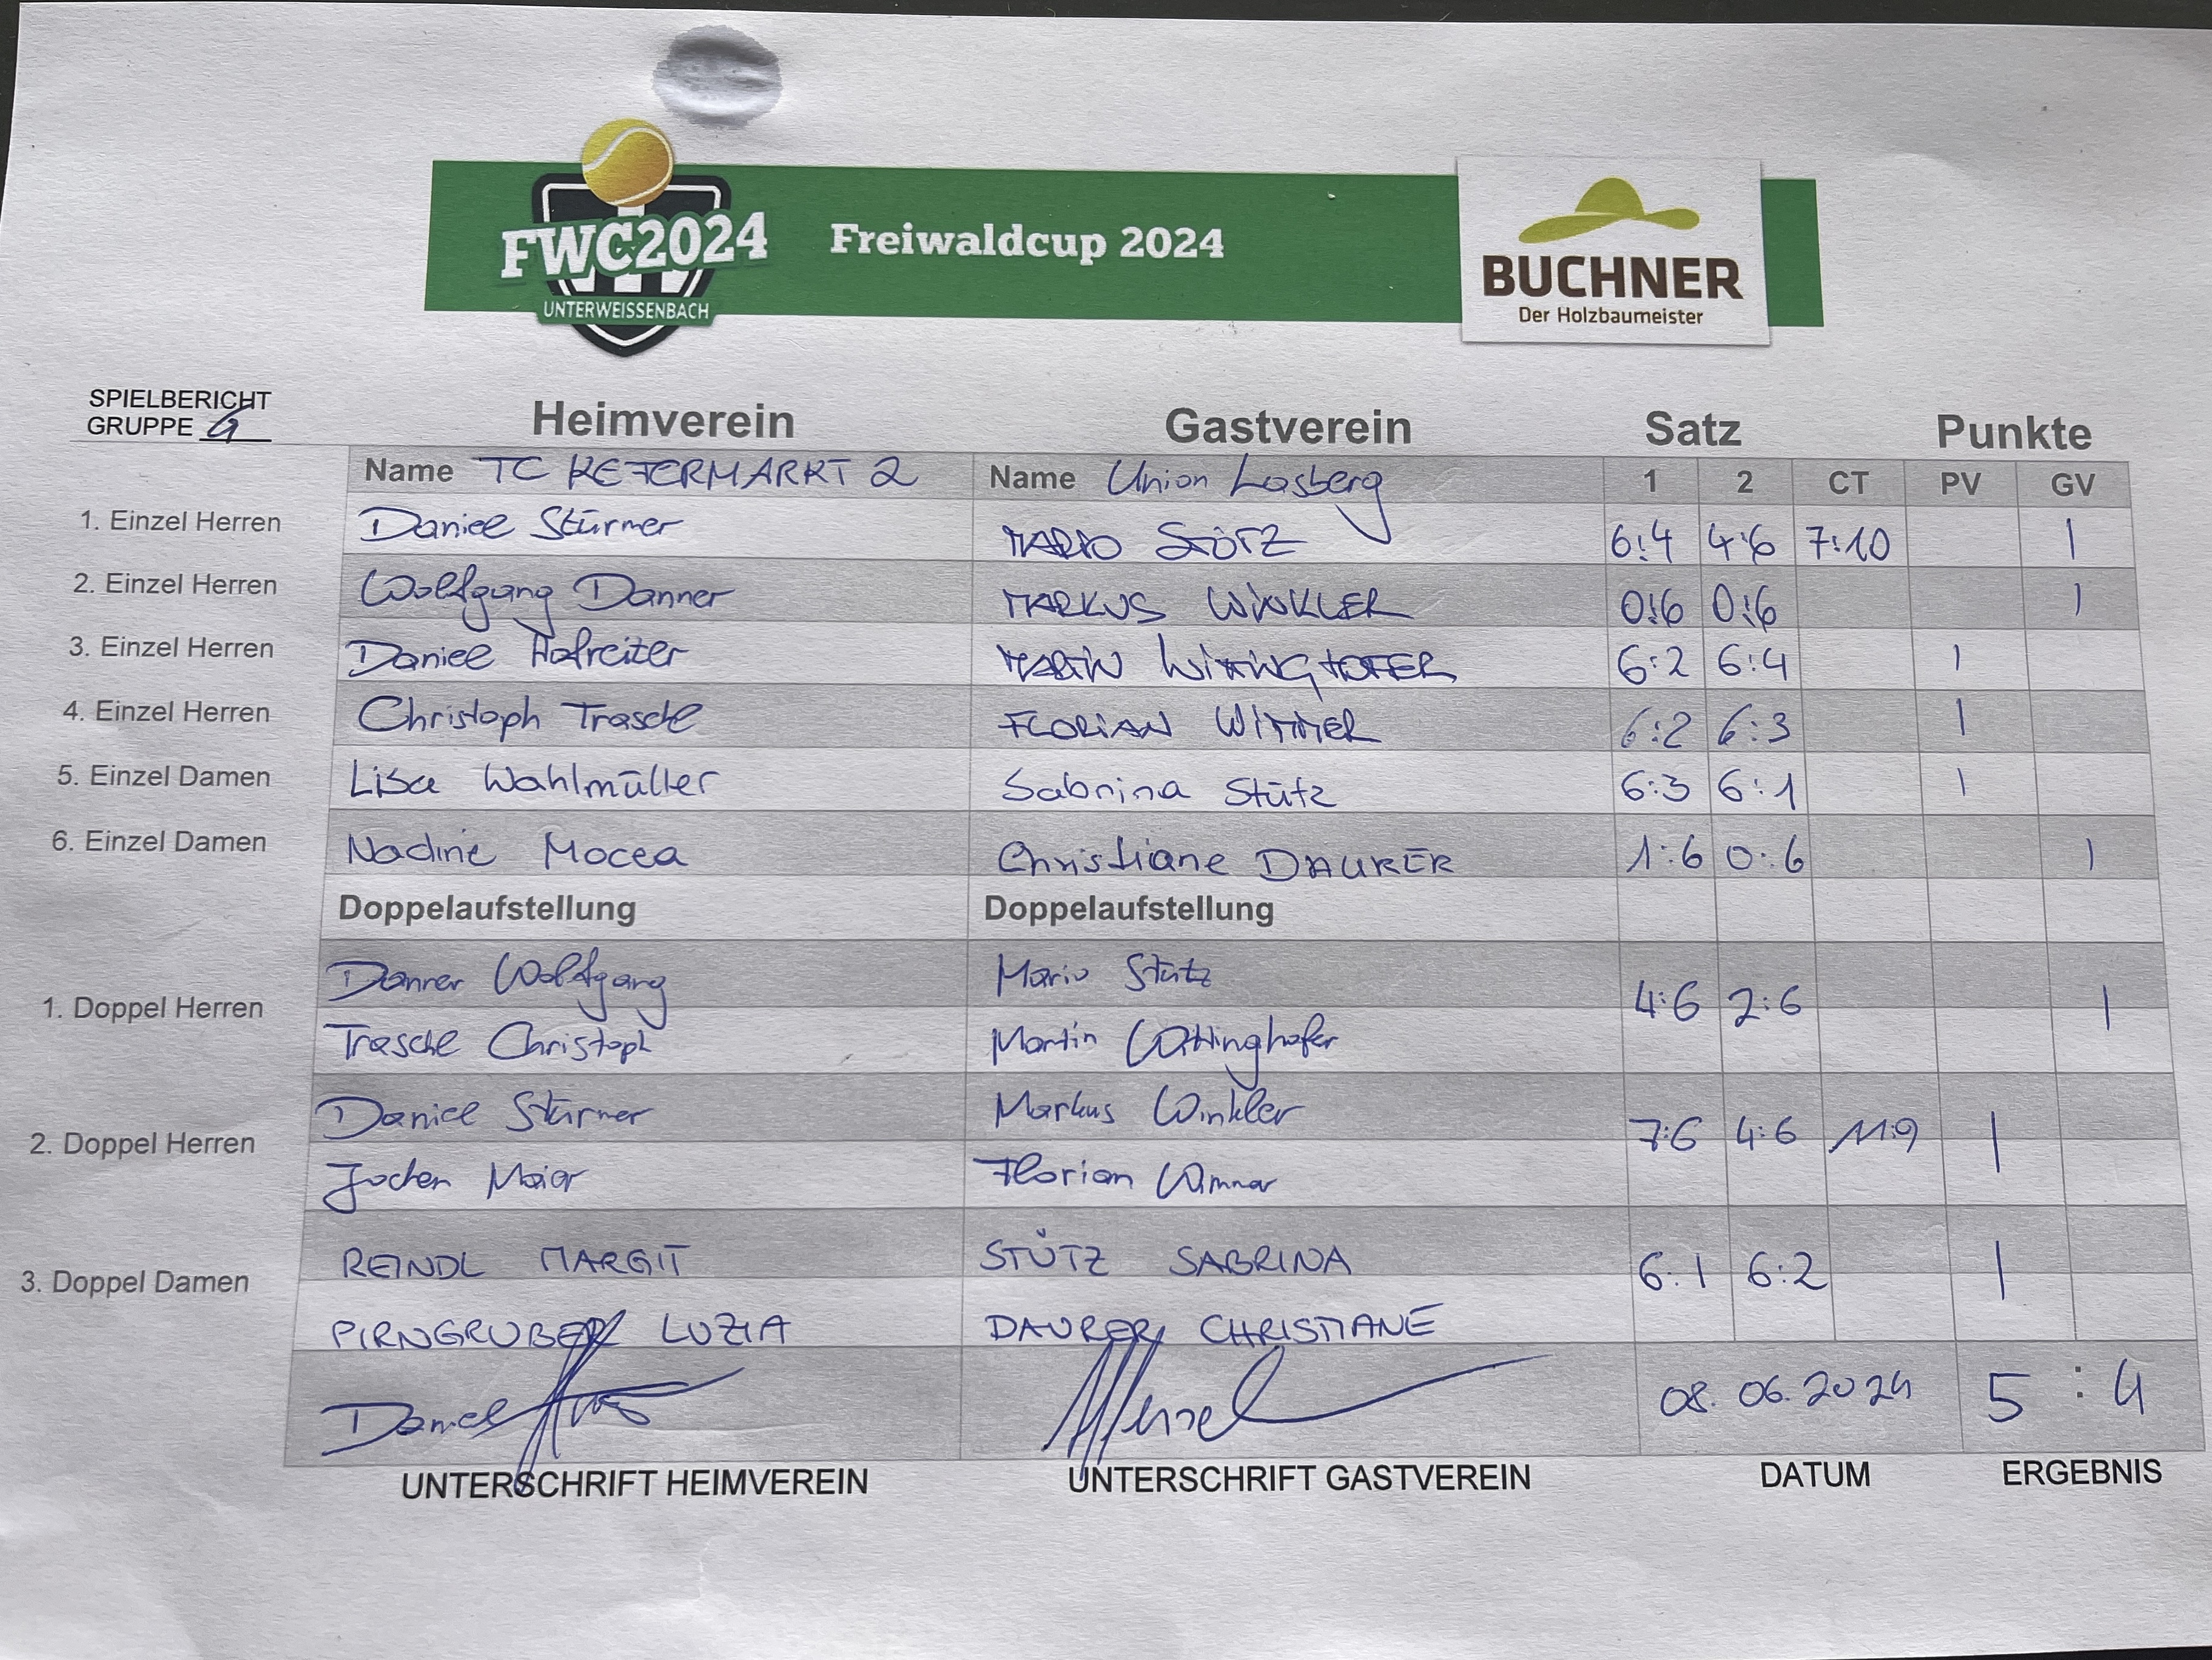 FWC2024
UNTERWEISSENBACH
Freiwaldcup 2024
BUCHNER
Der Holzbaumeister
SPIELBERICHT
GRUPPE G
Heimverein Gastverein Satz Punkte
Name TC KEFERMARKT 2 Name Union Lasberg 1 2 CT PV GV
1. Einzel Herren Daniel Stürmer MARIO STÜTZ 6:4 4:6 7:10 1
2. Einzel Herren Wolfgang Danner MARKUS WINKLER 0:6 0:6 1
3. Einzel Herren Daniel Hofreiter MARTIN WITTINGHOFER 6:2 6:4 1
4. Einzel Herren Christoph Traschl FLORIAN WIMMER 6:2 6:3 1
5. Einzel Damen Lisa Wahlmüller Sabrina Stütz 6:3 6:1 1
6. Einzel Damen Nadine Mocea Christiane DAURER 1:6 0:6 1
Doppelaufstellung Doppelaufstellung
Danner Wolfgang Mario Stütz
1. Doppel Herren 4:6 2:6 1
Traschl Christoph Martin Wittinghofer
Daniel Stürmer Markus Winkler
2. Doppel Herren 7:6 4:6 11:9 1
Jochen Maier Florian Wimmer
REINDL MARGIT STÜTZ SABRINA
3. Doppel Damen 6:1 6:2 1
PIRNGRUBER LUZIA DAURER CHRISTIANE
Daniel 08.06.2024 5 : 4
UNTERSCHRIFT HEIMVEREIN UNTERSCHRIFT GASTVEREIN DATUM ERGEBNIS